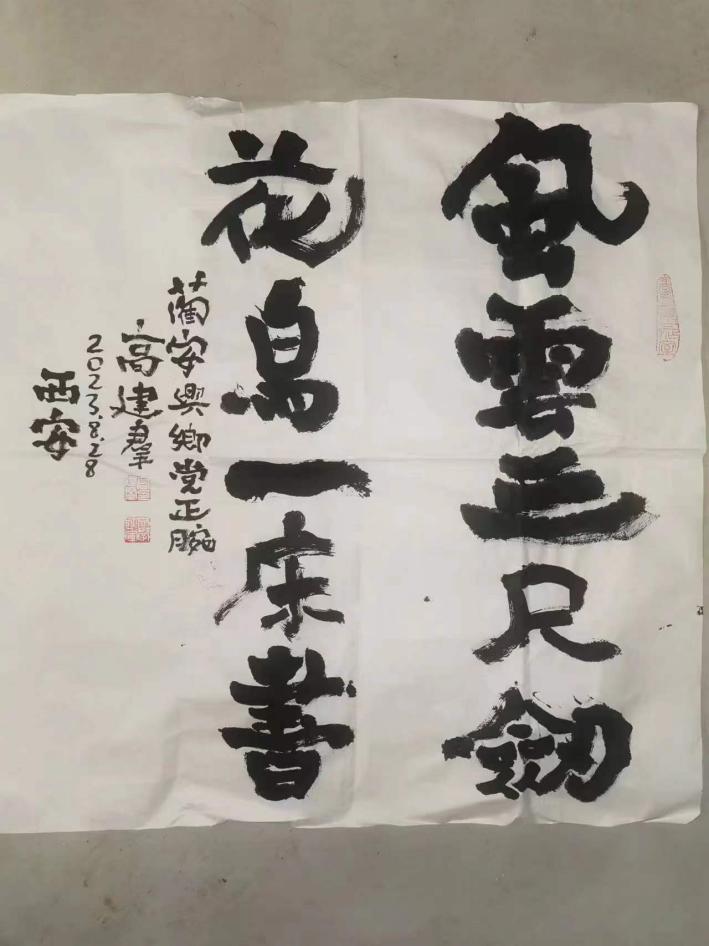 風雲三尺劍
花鳥一床書
安興鄉党正腕
高建羣
2023.8.28
西安